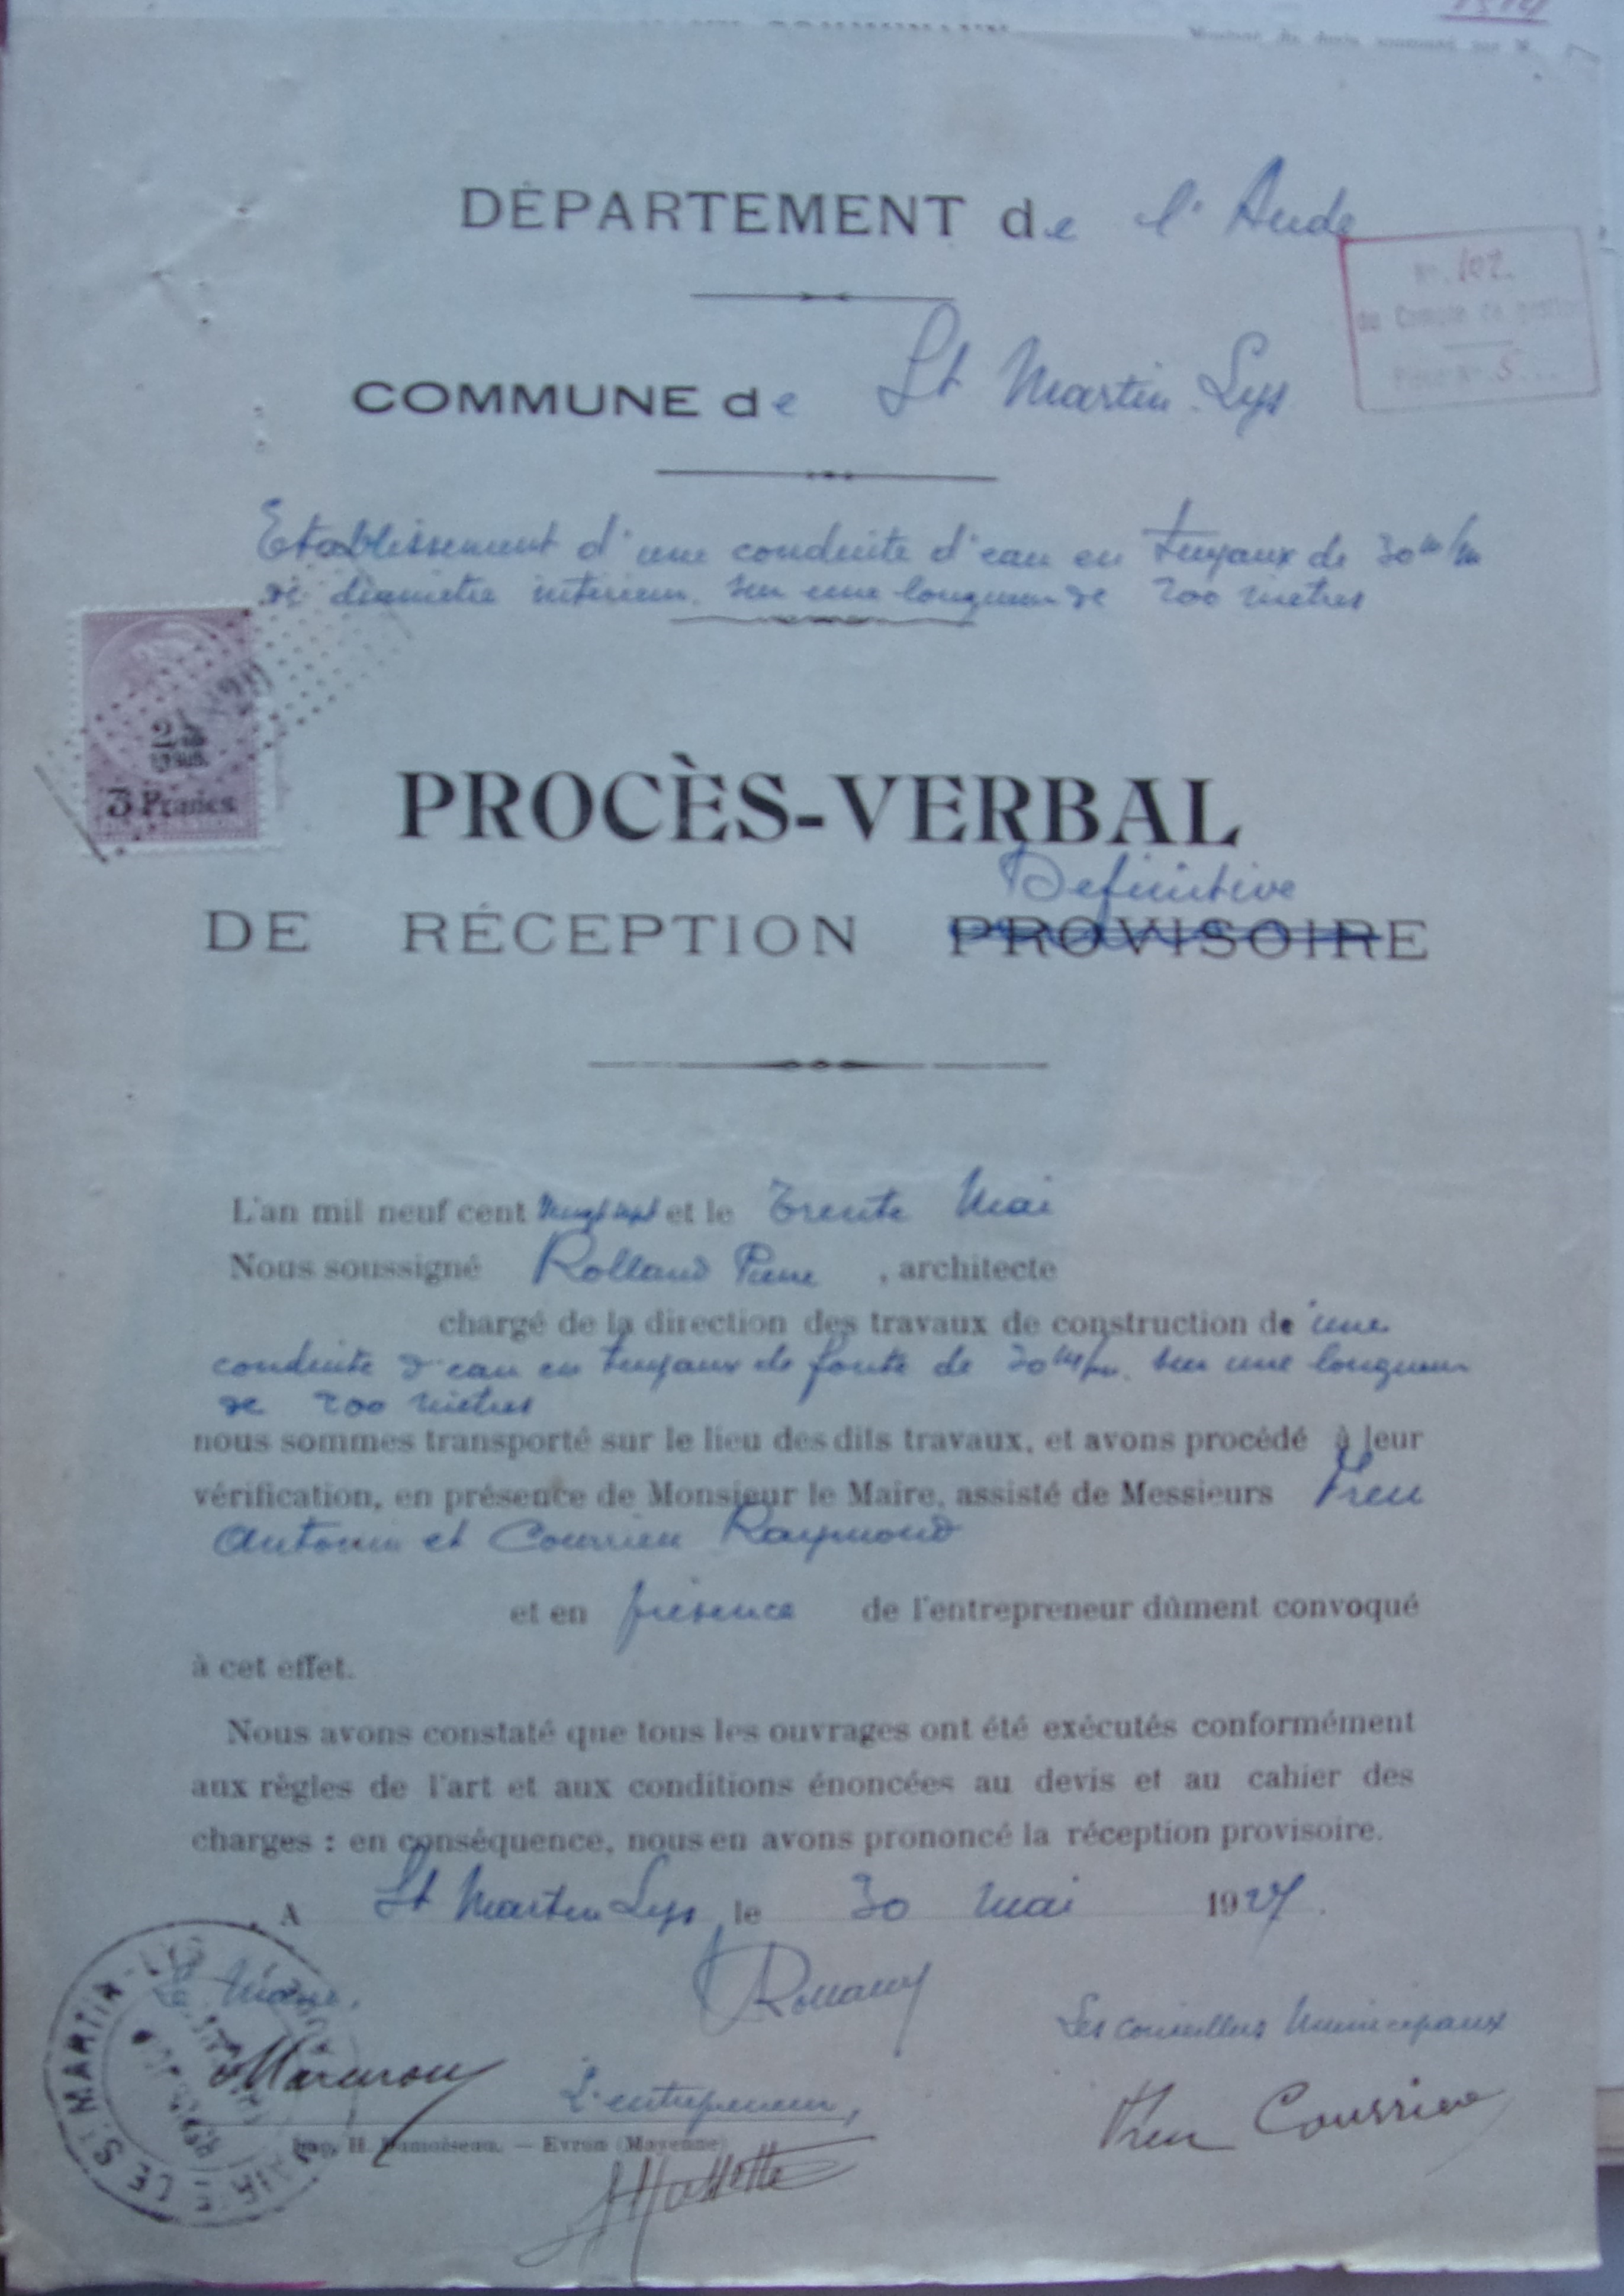 DÉPARTEMENT de l'Aude
N°. 102.
du Compte de gestion
Pièce N° 5
COMMUNE de St Martin-Lys
Etablissement d'une conduite d'eau en tuyaux de 30 m/m
de diametre interieur sur une longueur de 200 mètres
3 Francs
PROCÈS-VERBAL
Definitive
DE RÉCEPTION PROVISOIRE
L'an mil neuf cent vingt sept et le Trente Mai
Nous soussigné Rolland Pierre, architecte
chargé de la direction des travaux de construction de une
conduite d'eau en tuyaux de fonte de 30 m/m. sur une longueur
de 200 mètres
nous sommes transporté sur le lieu des dits travaux, et avons procédé à leur
vérification, en présence de Monsieur le Maire, assisté de Messieurs
Antonin et Courrieu Raymond
et en présence de l'entrepreneur dûment convoqué
à cet effet.
Nous avons constaté que tous les ouvrages ont été exécutés conformément
aux règles de l'art et aux conditions énoncées au devis et au cahier des
charges : en conséquence, nous en avons prononcé la réception provisoire.
A St Martin Lys, le 30 mai 1927.
Le Maire,
Les conseillers Municipaux
L'entrepreneur,
Courrieu
Imp. H. Damoiseau. — Evron (Mayenne)
MAIRIE DE ST MARTIN-LYS